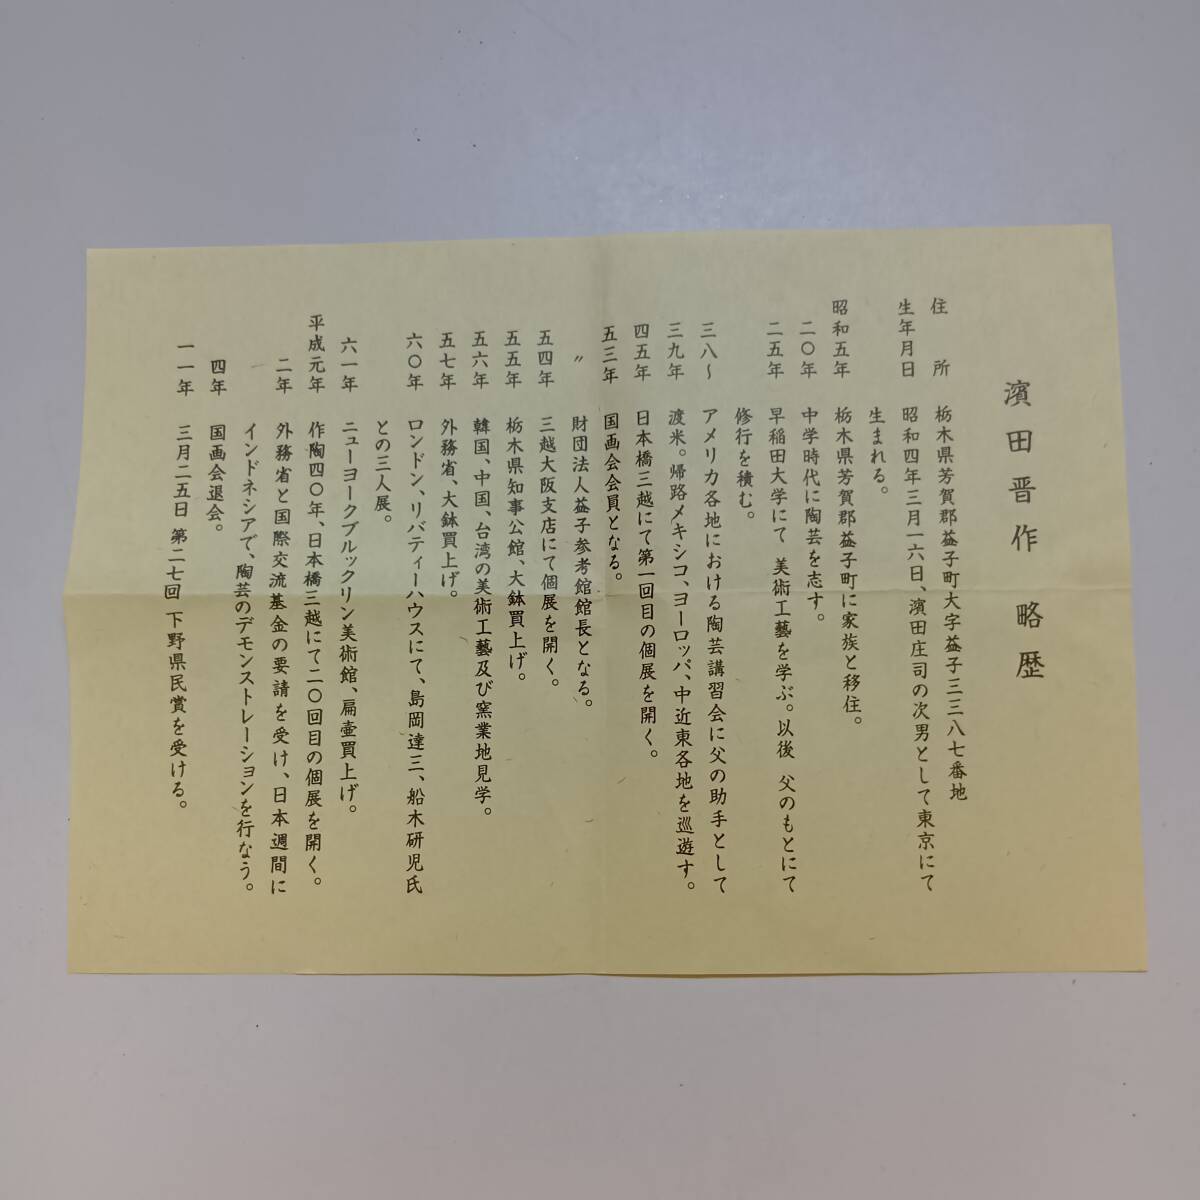 濱田晋作 略歴
住所 栃木県芳賀郡益子町大字益子三三八七番地
生年月日 昭和四年三月一六日、濱田庄司の次男として東京にて
生まれる。
昭和五年 栃木県芳賀郡益子町に家族と移住。
二〇年 中学時代に陶芸を志す。
二五年 早稲田大学にて 美術工藝を学ぶ。以後 父のもとにて
修行を積む。
三八〜 アメリカ各地における陶芸講習会に父の助手として
三九年 渡米。帰路メキシコ、ヨーロッパ、中近東各地を巡遊す。
四五年 日本橋三越にて第一回目の個展を開く。
五三年 国画会会員となる。
〃 財団法人益子参考館館長となる。
五四年 三越大阪支店にて個展を開く。
五五年 栃木県知事公館、大鉢買上げ。
五六年 韓国、中国、台湾の美術工藝及び窯業地見学。
五七年 外務省、大鉢買上げ。
六〇年 ロンドン、リバティーハウスにて、島岡達三、船木研児氏
との三人展。
六一年 ニューヨークブルックリン美術館、扁壷買上げ。
平成元年 作陶四〇年、日本橋三越にて二〇回目の個展を開く。
二年 外務省と国際交流基金の要請を受け、日本週間に
インドネシアで、陶芸のデモンストレーションを行なう。
四年 国画会退会。
一一年 三月二五日 第二七回 下野県民賞を受ける。